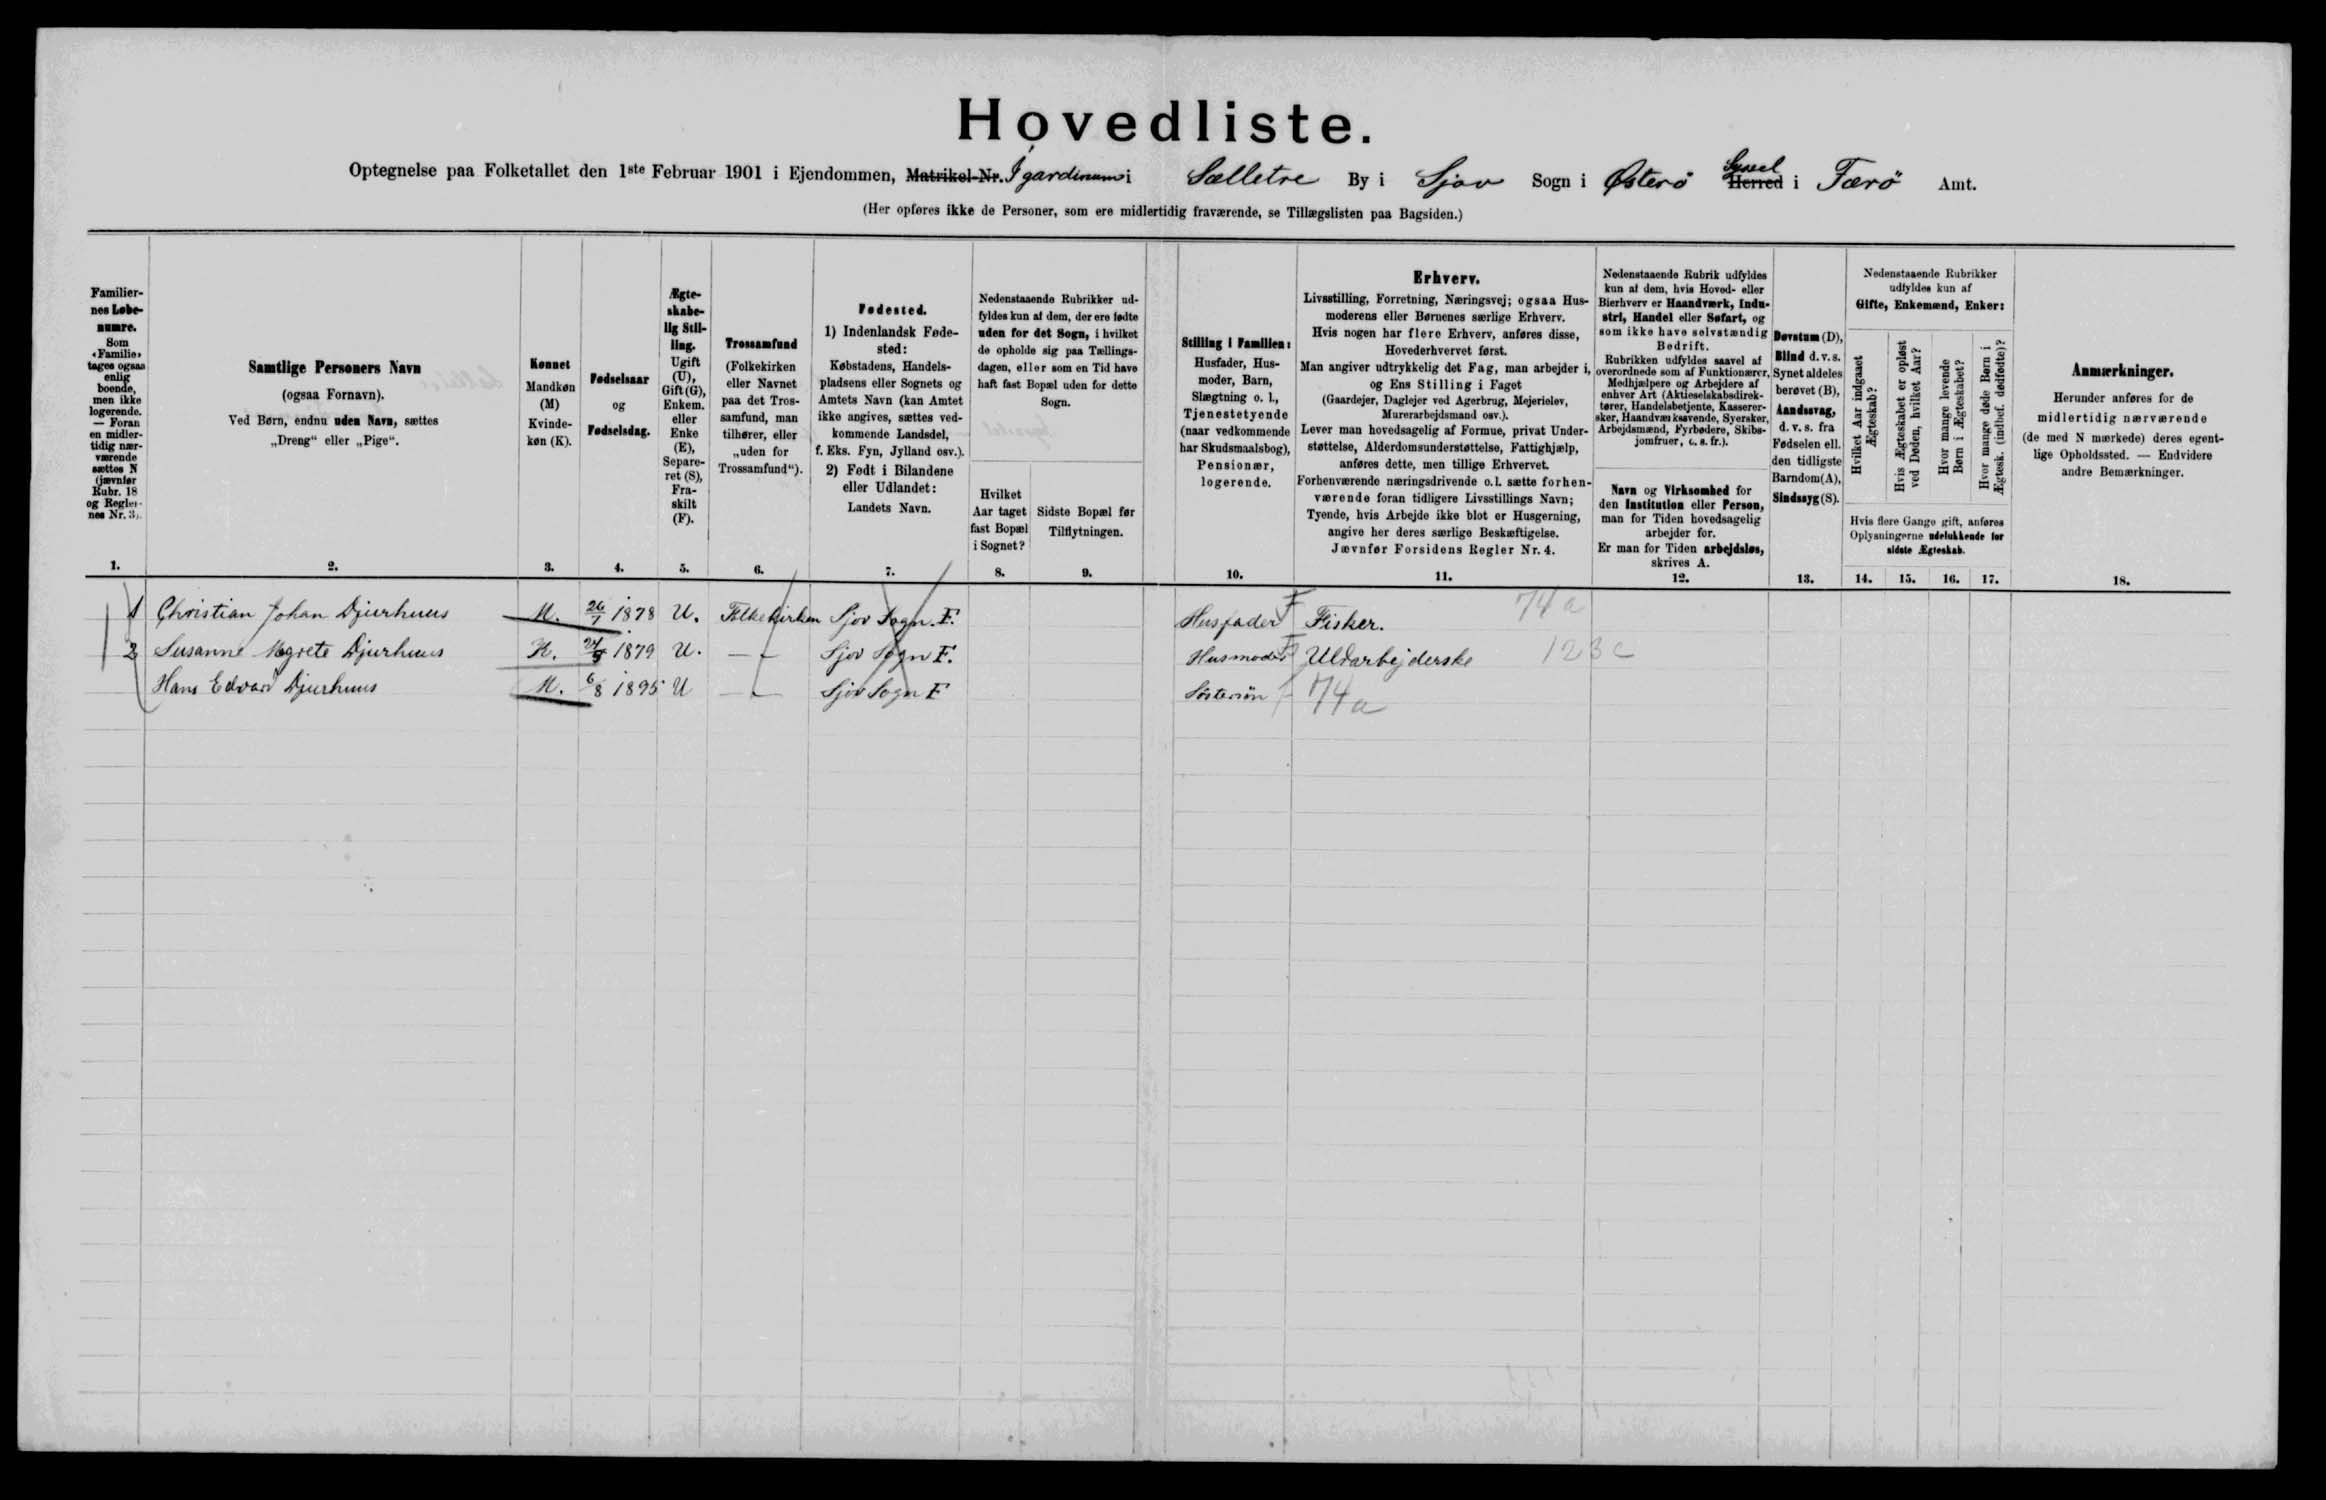 Hovedliste.
Optegnelse paa Folketallet den 1ste Februar 1901 i Ejendommen, Matrikel-Nr. Igardinum i Selletre By i Sjov Sogn i Østerö Syssel Herred i Færö Amt.
(Her opføres ikke de Personer, som ere midlertidig fraværende, se Tillægslisten paa Bagsiden.)
Familier-
nes Løbe-
numre.
Som
«Familie»
tages ogsaa
enlig
boende,
men ikke
logerende.
— Foran
en midler-
tidig nær-
værende
sættes N
(jævnfør
Rubr. 18
og Regler-
nes Nr. 3).
1.
Samtlige Personers Navn
(ogsaa Fornavn).
Ved Børn, endnu uden Navn, sættes
„Dreng“ eller „Pige“.
2.
Kønnet
Mandkøn
(M)
Kvinde-
køn (K).
3.
Fødselsaar
og
Fødselsdag.
4.
Ægte-
skabe-
lig Stil-
ling.
Ugift
(U),
Gift (G),
Enkem.
eller
Enke
(E),
Separe-
ret (S),
Fra-
skilt
(F).
5.
Trossamfund
(Folkekirken
eller Navnet
paa det Tros-
samfund, man
tilhører, eller
„uden for
Trossamfund“).
6.
Fødested.
1) Indenlandsk Føde-
sted:
Købstadens, Handels-
pladsens eller Sognets og
Amtets Navn (kan Amtet
ikke angives, sættes ved-
kommende Landsdel,
f. Eks. Fyn, Jylland osv.).
2) Født i Bilandene
eller Udlandet:
Landets Navn.
7.
Nedenstaaende Rubrikker ud-
fyldes kun af dem, der ere fødte
uden for det Sogn, i hvilket
de opholde sig paa Tællings-
dagen, eller som en Tid have
haft fast Bopæl uden for dette
Sogn.
Hvilket
Aar taget
fast Bopæl
i Sognet?
8.
Sidste Bopæl før
Tilflytningen.
9.
Stilling i Familien:
Husfader, Hus-
moder, Barn,
Slægtning o. l.,
Tjenestetyende
(naar vedkommende
har Skudsmaalsbog),
Pensionær,
logerende.
10.
Erhverv.
Livsstilling, Forretning, Næringsvej; ogsaa Hus-
moderens eller Børnenes særlige Erhverv.
Hvis nogen har flere Erhverv, anføres disse,
Hovederhvervet først.
Man angiver udtrykkelig det Fag, man arbejder i,
og Ens Stilling i Faget
(Gaardejer, Daglejer ved Agerbrug, Mejerielev,
Murerarbejdsmand osv.).
Lever man hovedsagelig af Formue, privat Under-
støttelse, Alderdomsunderstøttelse, Fattighjælp,
anføres dette, men tillige Erhvervet.
Forhenværende næringsdrivende o.l. sætte forhen-
værende foran tidligere Livsstillings Navn;
Tyende, hvis Arbejde ikke blot er Husgerning,
angive her deres særlige Beskæftigelse.
Jævnfør Forsidens Regler Nr. 4.
11.
Nedenstaaende Rubrik udfyldes
kun af dem, hvis Hoved- eller
Bierhverv er Haandværk, Indu-
stri, Handel eller Søfart, og
som ikke have selvstændig
Bedrift.
Rubrikken udfyldes saavel af
overordnede som af Funktionærer,
Medhjælpere og Arbejdere af
enhver Art (Aktieselskabsdirek-
tører, Handelsbetjente, Kasserer-
sker, Haandværkssvende, Syersker,
Arbejdsmænd, Fyrbødere, Skibs-
jomfruer, o. s. fr.).
Navn og Virksomhed for
den Institution eller Person,
man for Tiden hovedsagelig
arbejder for.
Er man for Tiden arbejdsløs,
skrives A.
12.
Døvstum (D),
Blind d. v. s.
Synet aldeles
berøvet (B),
Aandssvag,
d. v. s. fra
Fødselen ell.
den tidligste
Barndom (A),
Sindssyg (S).
13.
Nedenstaaende Rubrikker
udfyldes kun af
Gifte, Enkemænd, Enker:
Hvilket Aar indgaaet
Ægteskab?
Hvis Ægteskabet er opløst
ved Døden, hvilket Aar?
Hvor mange levende
Børn i Ægteskabet?
Hvor mange døde Børn i
Ægtesk. (indbef. dødfødte)?
Hvis flere Gange gift, anføres
Oplysningerne udelukkende for
sidste Ægteskab.
14. 15. 16. 17.
Anmærkninger.
Herunder anføres for de
midlertidig nærværende
(de med N mærkede) deres egent-
lige Opholdssted. — Endvidere
andre Bemærkninger.
18.
1 Christian Johan Djurhuus M. 26/1 1878 U. Folkekirken Sjov Sogn. F. Husfader F Fisker. 74a
2 Susanne Magrete Djurhuus K. 1879 U. — Sjov Sogn F. Husmoder F Uldarbejderske 123c
Hans Edvard Djurhuus M. 6/8 1895 U — Sjov Sogn F Söstersön 74a